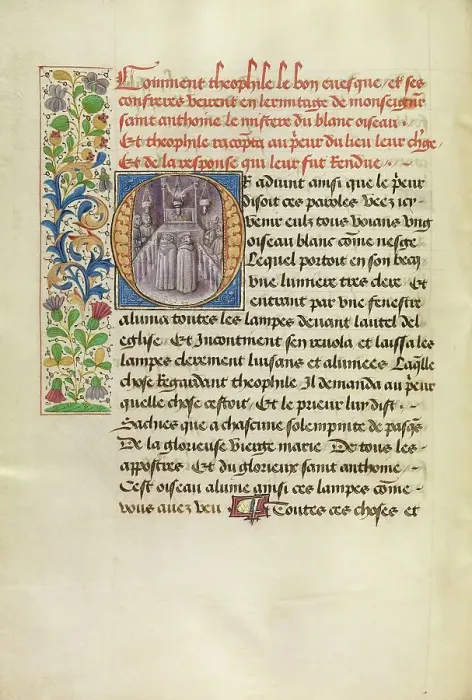 Comment theophile le bon euesque / et ses
confreres veirent en lermitage de monseigneur
saint anthoine le mistere du blanc oiseau .
Et theophile raconpta au p̄eur du lieu leur ch̄ge
Et de la response qui leur fut Rendue .
Or aduint ainsi que le p̄eur
disoit ces paroles Veez icy
venir eulz tous voians vng
oiseau blanc cōme neige
Lequel portoit en son becq
vne lumiere tres clere Et
entrant par vne fenestre
aluma toutes les lampes deuant lautel del
eglise Et Incontinent sen reuola et laissa les
lampes clerement luisans et alumees Laq̄lle
chose Regardant theophile Il demanda au p̄eur
quelle chose cestoit / Et le prieur luy dist .
Saches que a chascune solempnite de pasq̄s
De la glorieuse vierge marie De tous les
appostres Et du glorieux saint anthoine
Cest oiseau alume ainsi ces lampes cōme
vous auez veu Toutes ces choses et